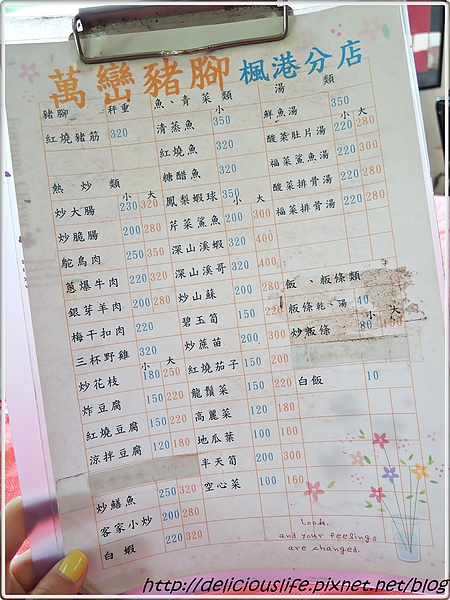 萬巒豬腳 楓港分店
豬腳 秤重
紅燒豬筋 320
熱炒類
小 大
炒大腸 230 320
炒脆腸 200 280
鴕鳥肉 250 350
蔥爆牛肉 220 320
銀芽羊肉 200 280
梅干扣肉 220
三杯野雞 320
小 大
炒花枝 180 250
炸豆腐 150 220
紅燒豆腐 150 220
涼拌豆腐 120 180
炒鱔魚 250 320
客家小炒 200 280
白蝦 220 320
魚、青菜類
小
清蒸魚 350
紅燒魚 320
糖醋魚 320
鳳梨蝦球 350
小 大
芹菜鯊魚 200 300
深山溪蝦 320 400
深山溪哥 320 400
炒山蘇 200 280
碧玉筍 150 220
炒蔴苗 200 300
紅燒茄子 150 200
龍鬚菜 150 200
高麗菜 120 180
地瓜葉 100 160
半天筍 200 300
空心菜 100 160
湯類
鮮魚湯 350
小 大
酸菜肚片湯 220 280
福菜鯊魚湯 220 280
酸菜排骨湯 220 280
福菜排骨湯 220 280
飯、粄條類
粄條乾、湯 40
小 大
炒粄條 80
白飯 10
Look,
and your feelings
are changed.
http://deliciouslife.pixnet.net/blog